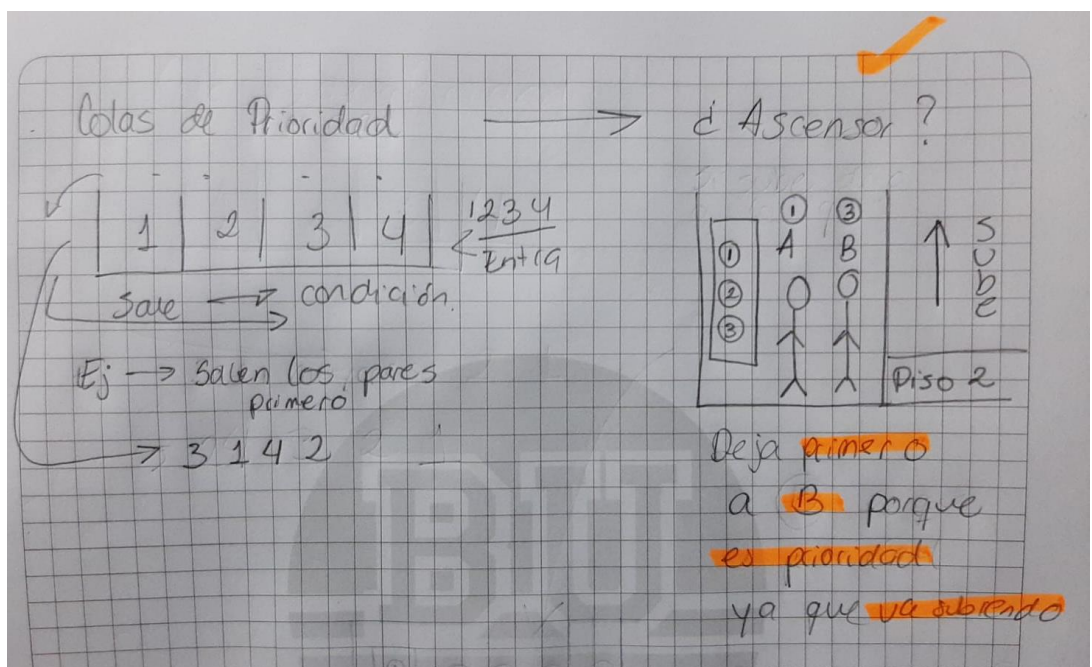 Colas de Prioridad → ¿Ascensor?
1 2 3 4
1234
Entra
Sale → condición.
Ej → Salen los pares
primero
→ 3 1 4 2
① ③
A B
①
②
③
Sube
Piso 2
Deja primero
a B porque
es prioridad
ya que va subiendo
BIU